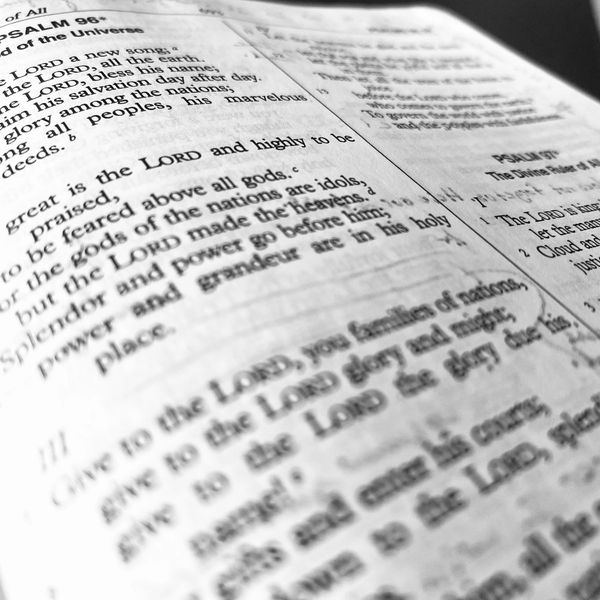 of All
PSALM 96*
d of the Universe
LORD a new song; a
the LORD, all the earth.
he LORD, bless his name;
aim his salvation day after day.
glory among the nations;
ng all peoples, his marvelous
deeds. b
great is the LORD and highly to be
praised,
to be feared above all gods. c
or the gods of the nations are idols,
but the LORD made the heavens. d
Splendor and power go before him;
power and grandeur are in his holy
place.
III
Give to the LORD, you families of nations,
give to the LORD glory and might;
give to the LORD the glory due his
name!
gifts and enter his courts;
down to the LORD,
all the
who comes to govern the earth,
To govern the world with
and the peoples
PSALM 97*
The Divine Ruler of All
The LORD is king
let the man
2 Cloud and
justi
3